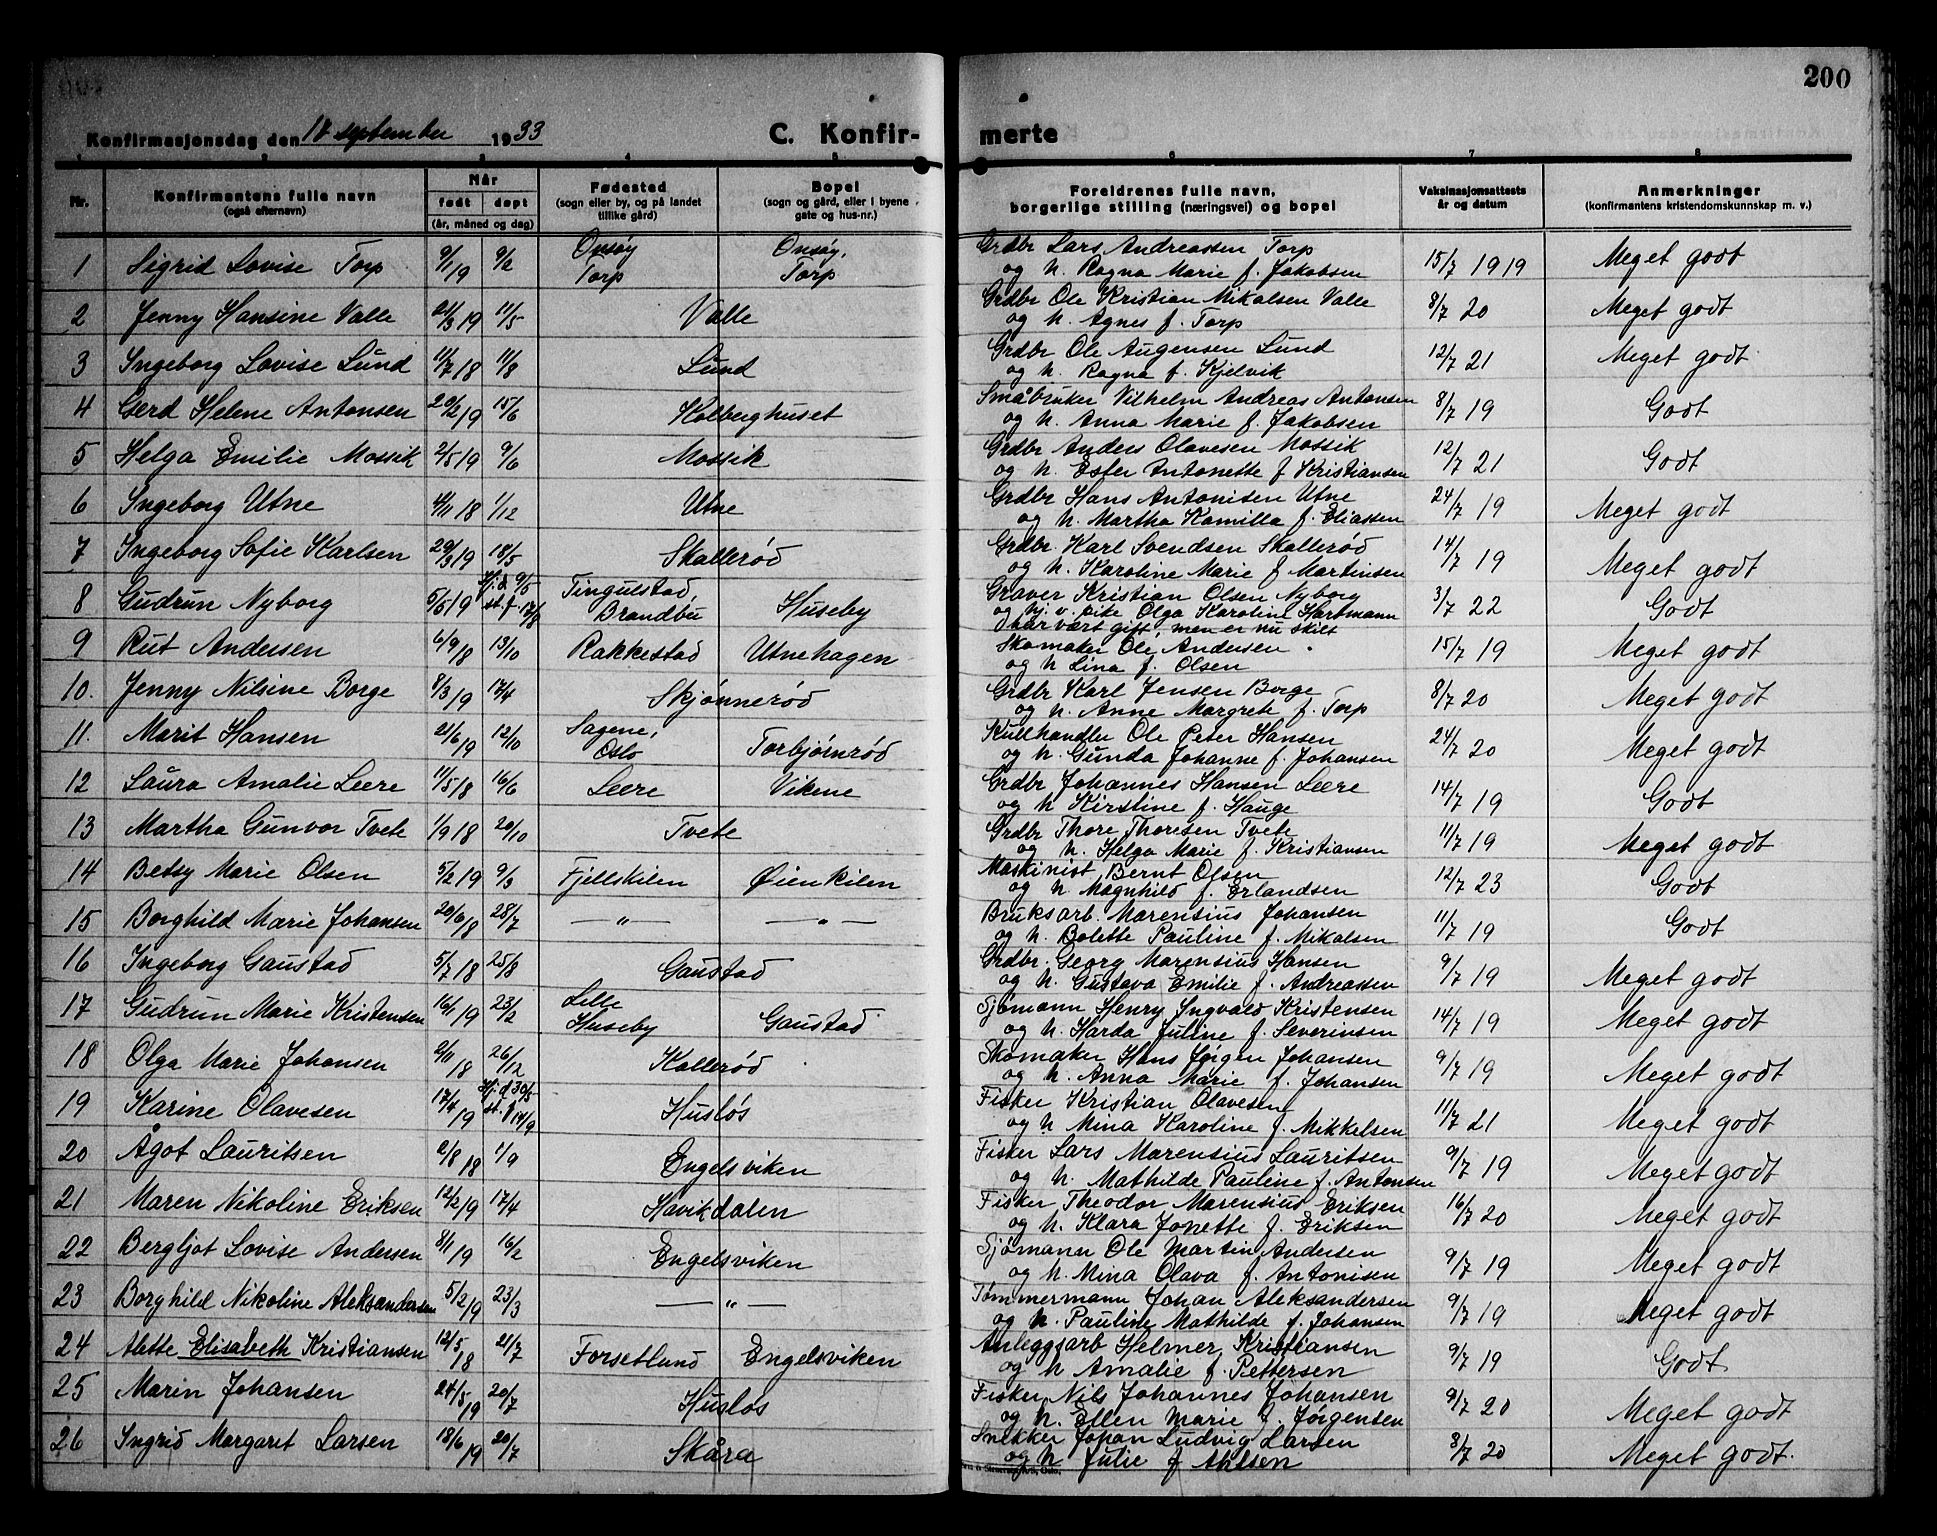 200
Konfirmasjonsdag den 18 september 1933
C. Konfirmerte
1 2 3 4 5 6 7 8
Nr. | Konfirmantens fulle navn (også efternavn) | Når født døpt (år, måned og dag) | Fødested (sogn eller by, og på landet tillike gård) | Bopel (sogn og gård, eller i byene gate og hus-nr.) | Foreldrenes fulle navn, borgerlige stilling (næringsvei) og bopel | Vaksinasjonsattests år og datum | Anmerkninger (konfirmantens kristendomskunnskap m. v.)
1 Sigrid Lovise Torp 9/1 19 9/2 Onsøy Torp Onsøy, Torp Grdbr Lars Andreassen Torp
og h. Ragna Marie f. Jakobsen 15/7 1919 Meget godt
2 Jenny Hansine Valle 21/3 19 11/5 Valle Grdbr Ole Kristian Mikalsen Valle
og h. Agnes f. Torp 8/7 20 Meget godt
3 Ingeborg Lovise Lund 11/7 18 11/8 Lund Grdbr Ole Augensen Lund
og h. Ragna f. Kjelvik 12/7 21 Meget godt
4 Gerd Helene Antonsen 20/2 19 15/6 Kolberghuset Småbruker Vilhelm Andreas Antonsen
og h. Anna Marie f. Jakobsen 8/7 19 Godt
5 Helga Emilie Mossik 2/5 19 9/6 Mossik Grdbr Anders Olavesen Mossik
og h. Ester Antonette f Kristiansen 12/7 21 Godt
6 Ingeborg Utne 4/11 18 1/12 Utne Grdbr Hans Antonisen Utne
og h. Martha Kamilla f. Eliassen 24/7 19 Meget godt
7 Ingeborg Sofie Karlsen 29/3 19 18/5 Skallerød Grdbr. Karl Svendsen Skallerød
og h. Karoline Marie f Martinsen 14/7 19 Meget godt
8 Gudrun Nyborg 5/5 19 Hj.d 9/5 st. f. 17/8 Tingulstad, Brandbu Huseby Graver Kristian Olsen Nyborg
og hj. v. pike Olga Karoline Hartmann
har vært gift, men er nu skilt 3/7 22 Godt
9 Rut Andersen 6/9 18 13/10 Rakkestad Utnehagen Skomaker Ole Andersen
og h Lina f. Olsen 15/7 19 Meget godt
10. Jenny Nilsine Borge 8/3 19 17/4 Skjønnerød Grdbr Karl Jensen Borge
og h. Anne Margrete f. Torp 8/7 20 Meget godt
11. Marit Hansen 21/6 19 12/10 Sagene, Oslo Torbjørnrød Kullhandler Ole Peter Hansen
og h. Gunda Johanne f. Johansen 24/7 20 Meget godt
12 Laura Amalie Leere 11/5 18 16/6 Leere Vikene Grdbr Johannes Hansen Leere
og h Kirstine f. Hauge 14/7 19 Godt
13 Martha Gunvor Tvete 1/9 18 20/10 Tvete Grdbr Thore Thoresen Tvete
og h. Helga Marie f. Kristiansen 11/7 19 Meget godt
14 Betsy Marie Olsen 5/2 19 9/3 Fjellskilen Øienkilen Maskinist Bernt Olsen
og h Magnhild f. Erlandsen 12/7 23 Godt
15 Borghild Marie Johansen 20/6 18 28/7 — " — — " — Bruksarb. Marensius Johansen
og h. Bolette Pauline f. Mikalsen 11/7 19 Godt
16 Ingeborg Gaustad 5/7 18 25/8 Gaustad Grdbr. Georg Marensius Hansen
og h. Gustava Emilie f. Andreassen 9/7 19 Meget godt
17 Gudrun Marie Kristensen 16/1 19 23/2 Lille Huseby Gaustad Sjømann Henry Ingvald Kristensen
og h. Harda Juline f. Severinsen 14/7 19 Meget godt
18 Olga Marie Johansen 2/11 18 26/12 Kallerød Skomaker Hans Jørgen Johansen
og h. Anna Marie f. Johansen 9/7 19 Meget godt
19 Karine Olavesen 17/4 19 Hj.d 30/5 st. f 14/9 Husløs Fisker Kristian Olavesen
og h Mina Karoline f. Mikkelsen 11/7 21 Meget godt
20 Ågot Lauritsen 2/8 18 1/9 Engelsviken Fisker Lars Marensius Lauritsen
og h. Mathilde Pauline f. Antonsen 9/7 19 Meget godt
21 Maren Nikoline Eriksen 12/2 19 17/4 Havikdalen Fisker Theodor Marensius Eriksen
og h. Klara Jonette f. Eriksen 16/7 20 Meget godt
22 Bergljot Lovise Andersen 8/1 19 16/2 Engelsviken Sjømann Ole Martin Andersen
og h. Mina Olava f. Antonisen 9/7 19 Meget godt
23 Borghild Nikoline Aleksandersen 5/2 19 23/3 — " — Tømmermann Johan Aleksandersen
og h. Pauline Mathilde f. Johansen 9/7 19 Meget godt
24 Alette Elisabeth Kristiansen 12/5 18 21/7 Forsetlund Engelsviken Anleggsarb Helmer Kristiansen
og h Amalie f. Pettersen 9/7 19 Godt
25 Marin Johansen 24/5 19 20/7 Husløs Fisker Nils Johannes Johansen
og h. Ellen Marie f. Jørgensen 9/7 20 Meget godt
26 Ingrid Margaret Larsen 18/6 19 20/7 Skåra Snekker Johan Ludvig Larsen
og h Julie f Ahlsen 8/7 20 Meget godt.